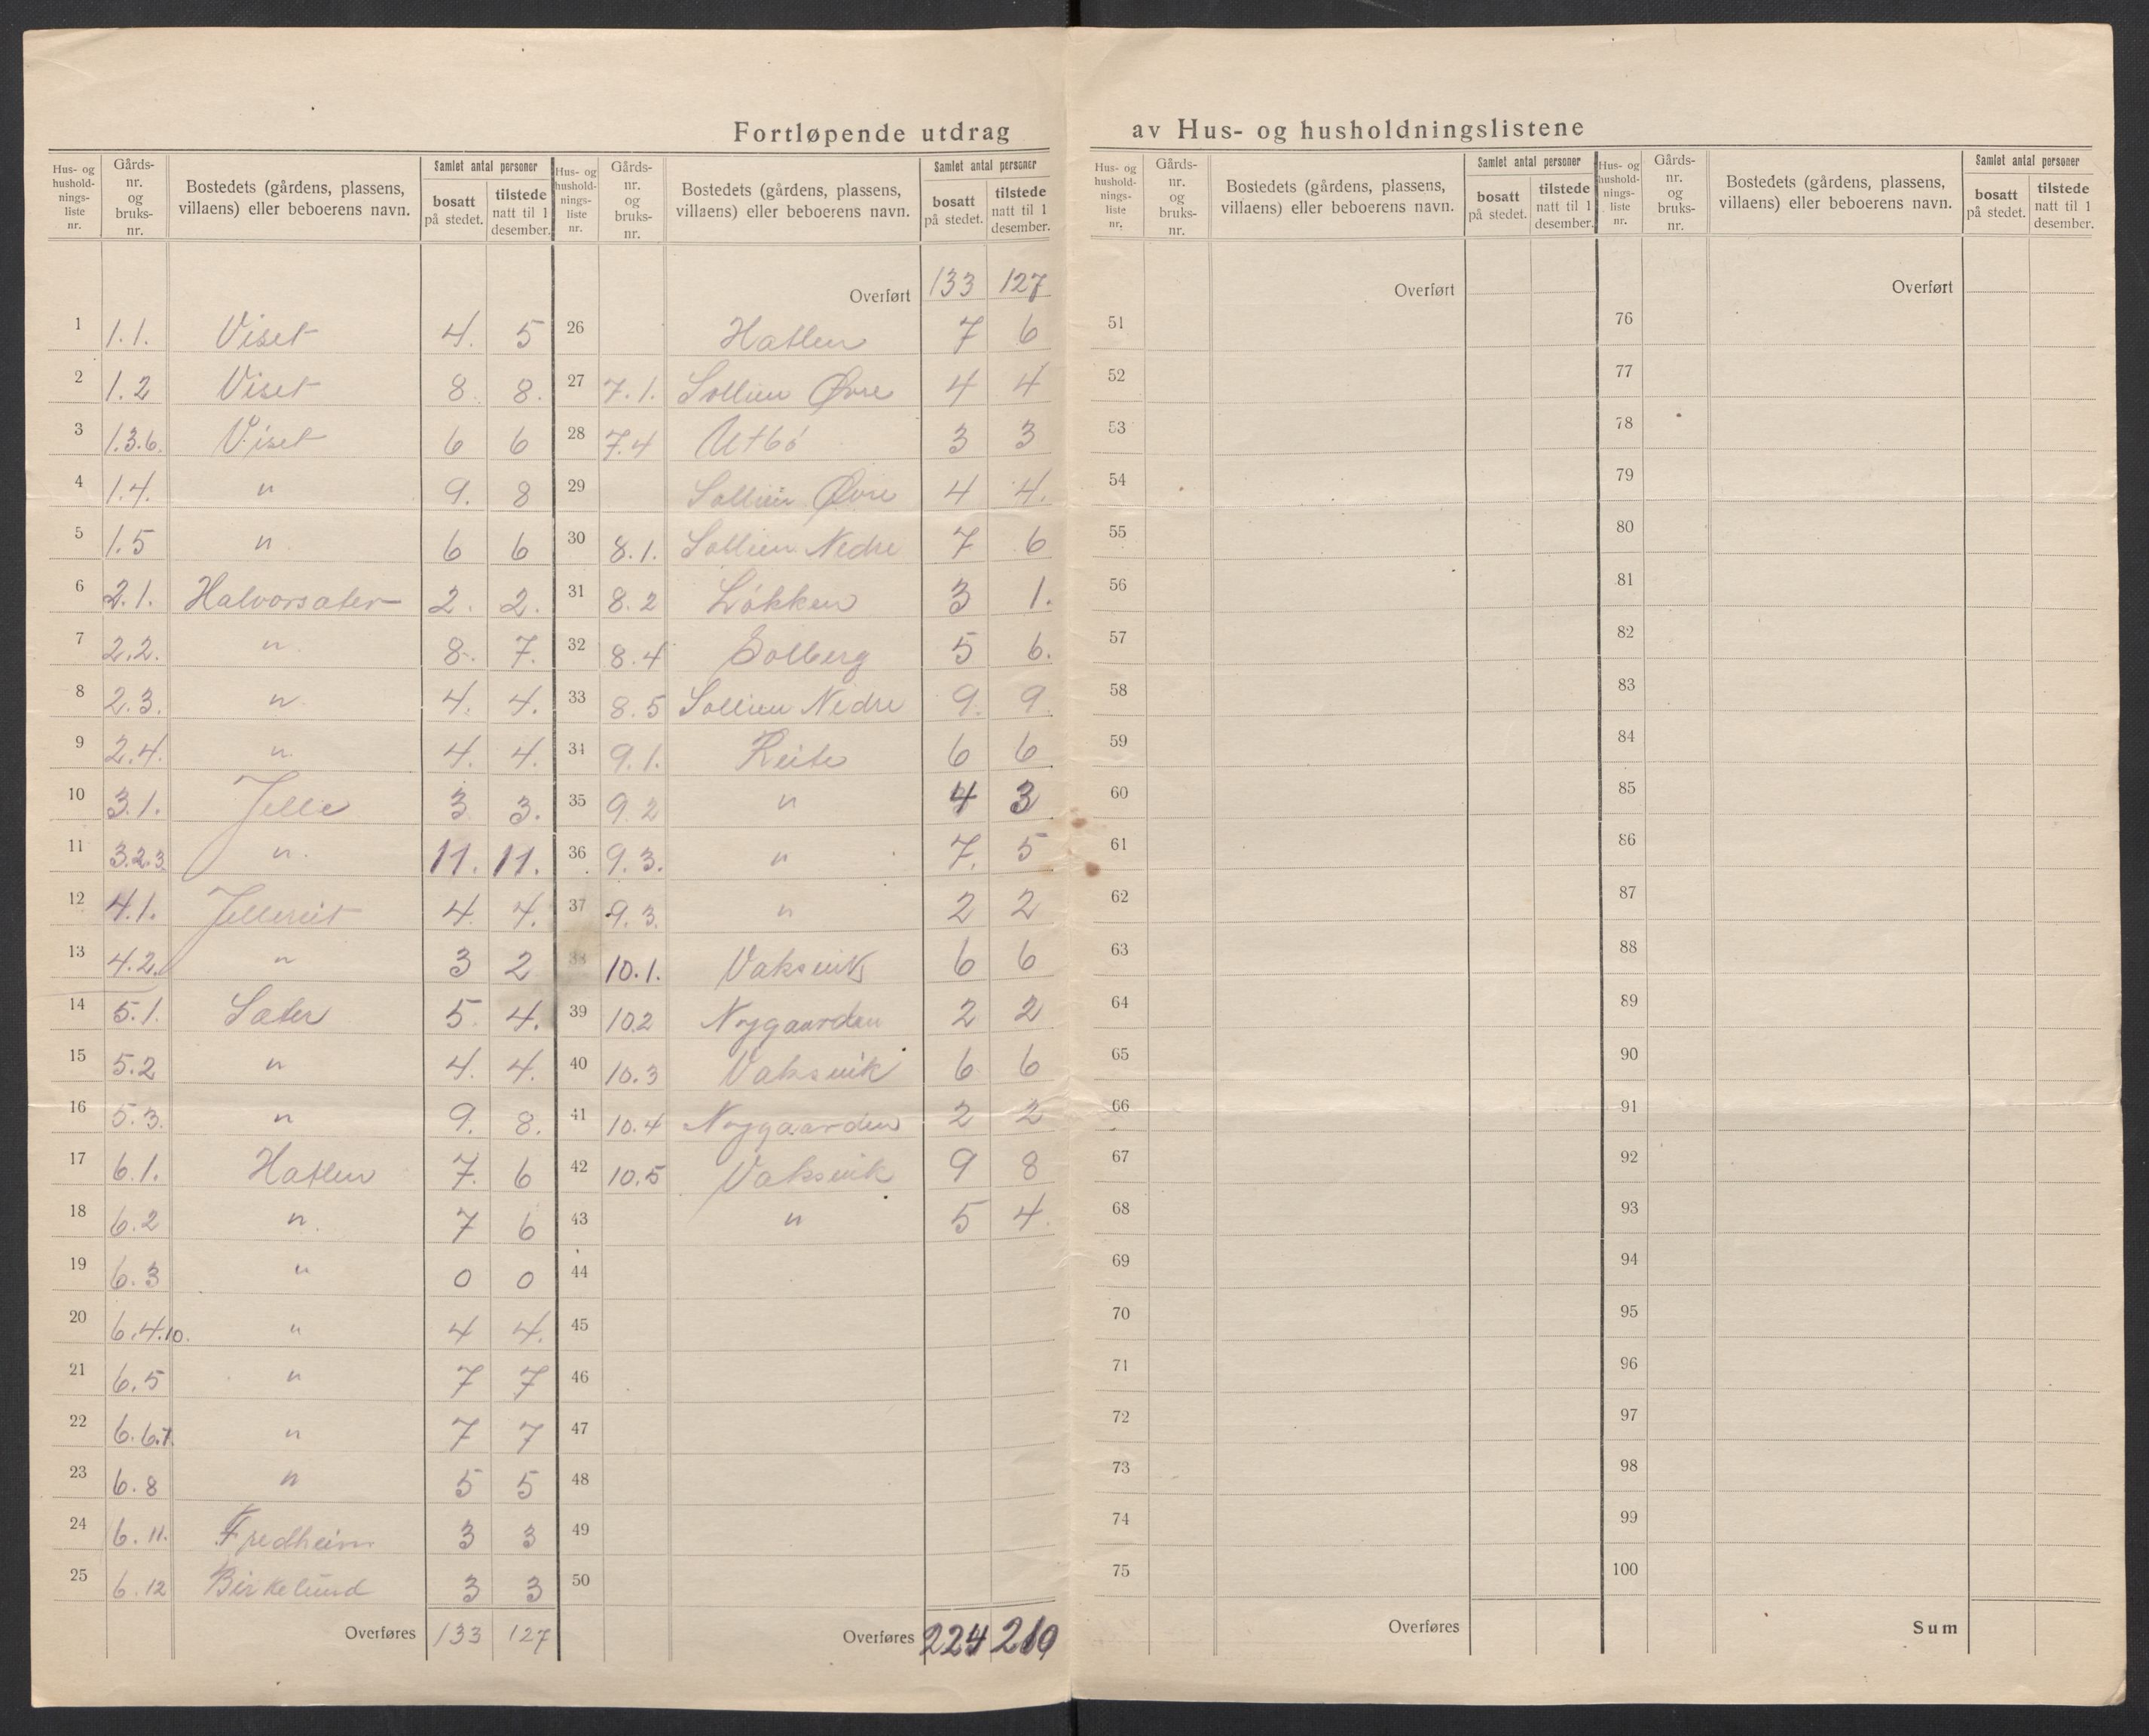 Fortløpende utdrag av Hus- og husholdningslistene
Hus- og husholdnings-liste nr. | Gårds-nr. og bruks-nr. | Bostedets (gårdens, plassens, villaens) eller beboerens navn. | Samlet antal personer | bosatt på stedet. | tilstede natt til 1 desember.
1 1.1. Viset 4. 5
2 1.2 Viset 8. 8.
3 1.3.6. Viset 6 6
4 1.4. " 9. 8
5 1.5 " 6 6
6 2.1. Halvorsater 2. 2.
7 2.2. " 8. 7.
8 2.3. " 4. 4.
9 2.4. " 4. 4.
10 3.1. Jelle 3 3.
11 3.2.3. " 11. 11.
12 4.1. Jellereit 4. 4.
13 4.2. " 3 2
14 5.1. Sater 5. 4.
15 5.2 " 4. 4.
16 5.3. " 9. 8.
17 6.1. Hatlen 7. 6
18 6.2 " 7 6
19 6.3 " 0 0
20 6.4.10. " 4 4.
21 6.5 " 7 7
22 6.6.7. " 7 7
23 6.8 " 5 5
24 6.11. Fredheim 3 3
25 6.12 Birkelund 3 3
Overføres 133 127
Hus- og husholdnings-liste nr. | Gårds-nr. og bruks-nr. | Bostedets (gårdens, plassens, villaens) eller beboerens navn. | Samlet antal personer | bosatt på stedet. | tilstede natt til 1 desember.
Overført 133 127
26 Hatlen 7 6
27 7.1. Sollien Øvre 4 4
28 7.4 Utbó 3 3
29 Sollien Øvre 4 4.
30 8.1. Sollien Nedre 7 6
31 8.2 Lókken 3 1.
32 8.4 Solberg 5 6.
33 8.5 Sollien Nedre 9. 9
34 9.1. Reite 6 6
35 9.2 " 4 3
36 9.3. " 7. 5
37 9.3. " 2 2
38 10.1. Vaksvik 6 6
39 10.2 Nygaarden 2 2
40 10.3 Vaksvik 6 6
41 10.4 Nygaarden 2 2
42 10.5 Vaksvik 9 8
43 " 5 4.
44
45
46
47
48
49
50
Overføres 224 210
Hus- og husholdnings-liste nr. | Gårds-nr. og bruks-nr. | Bostedets (gårdens, plassens, villaens) eller beboerens navn. | Samlet antal personer | bosatt på stedet. | tilstede natt til 1 desember.
Overført
51
52
53
54
55
56
57
58
59
60
61
62
63
64
65
66
67
68
69
70
71
72
73
74
75
Overføres
Hus- og husholdnings-liste nr. | Gårds-nr. og bruks-nr. | Bostedets (gårdens, plassens, villaens) eller beboerens navn. | Samlet antal personer | bosatt på stedet. | tilstede natt til 1 desember.
Overført
76
77
78
79
80
81
82
83
84
85
86
87
88
89
90
91
92
93
94
95
96
97
98
99
100
Sum